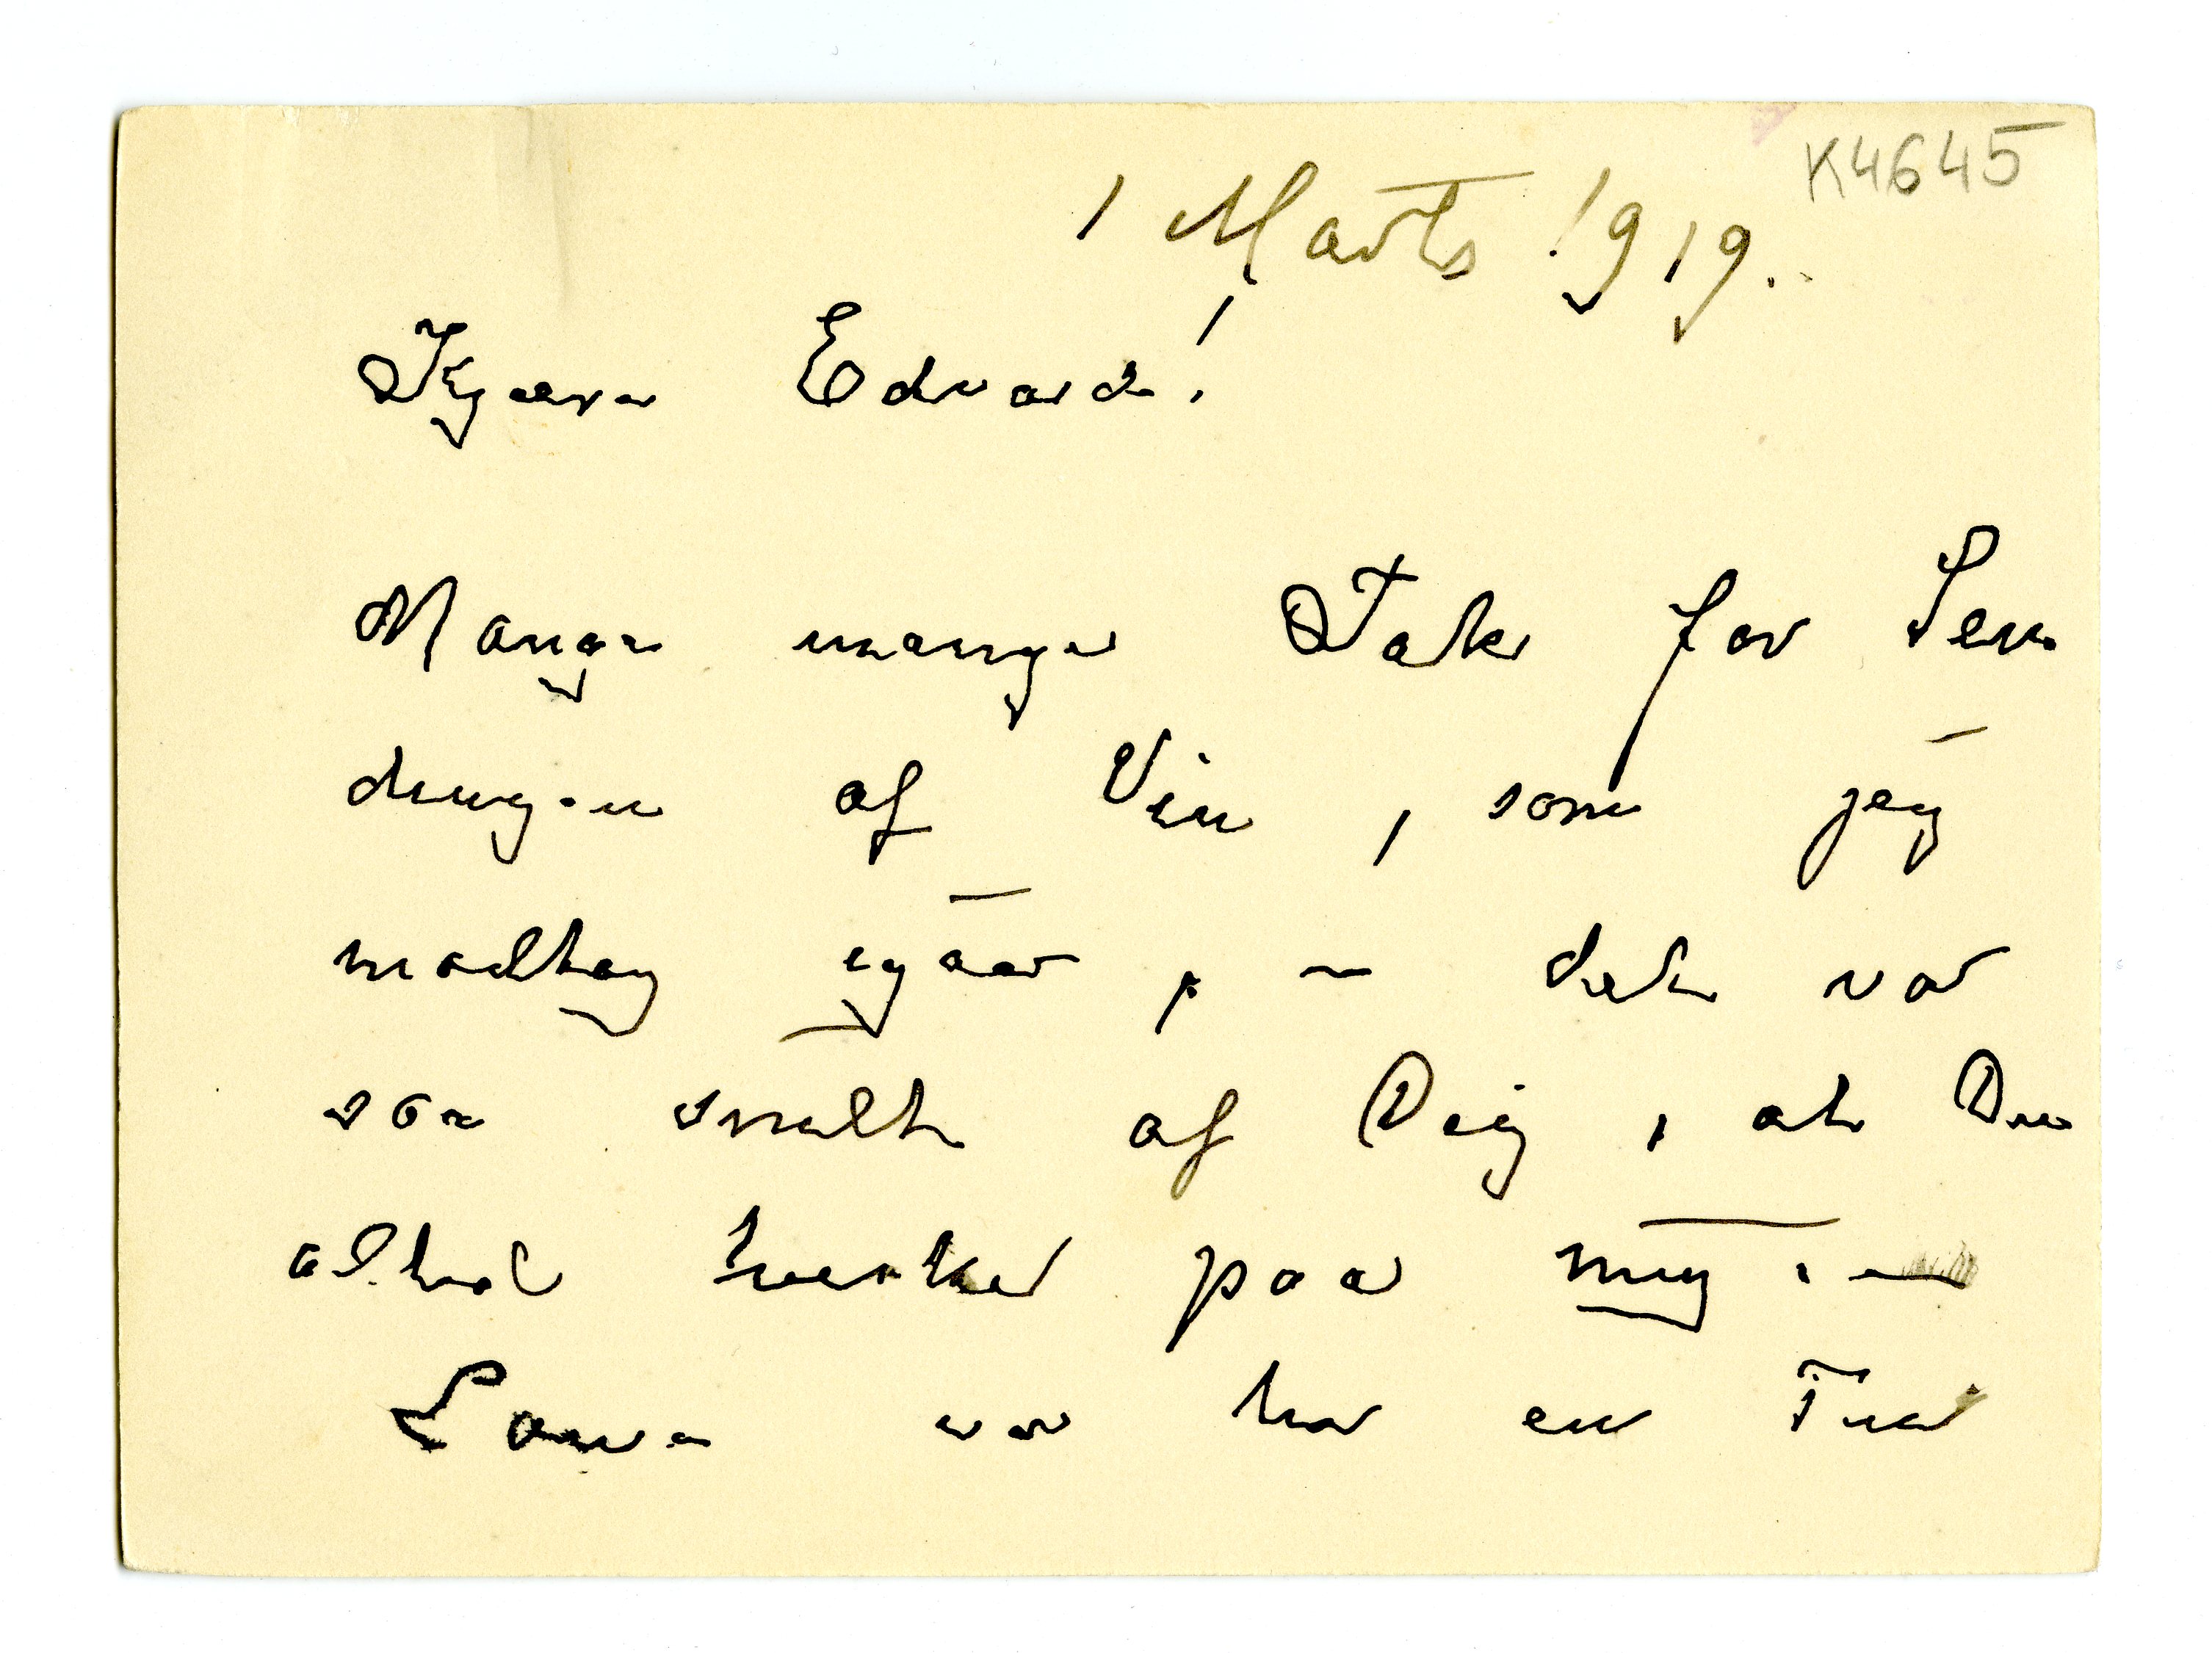 K4645
1 Marts 1919.
Kjære Edvard!
Mange mange Tak for Sen
dingen af Vin, som jeg
modtog igaar, – det var
saa snilt af Dig, at Du
altid tenker paa mig. –
Laura var her en Tur